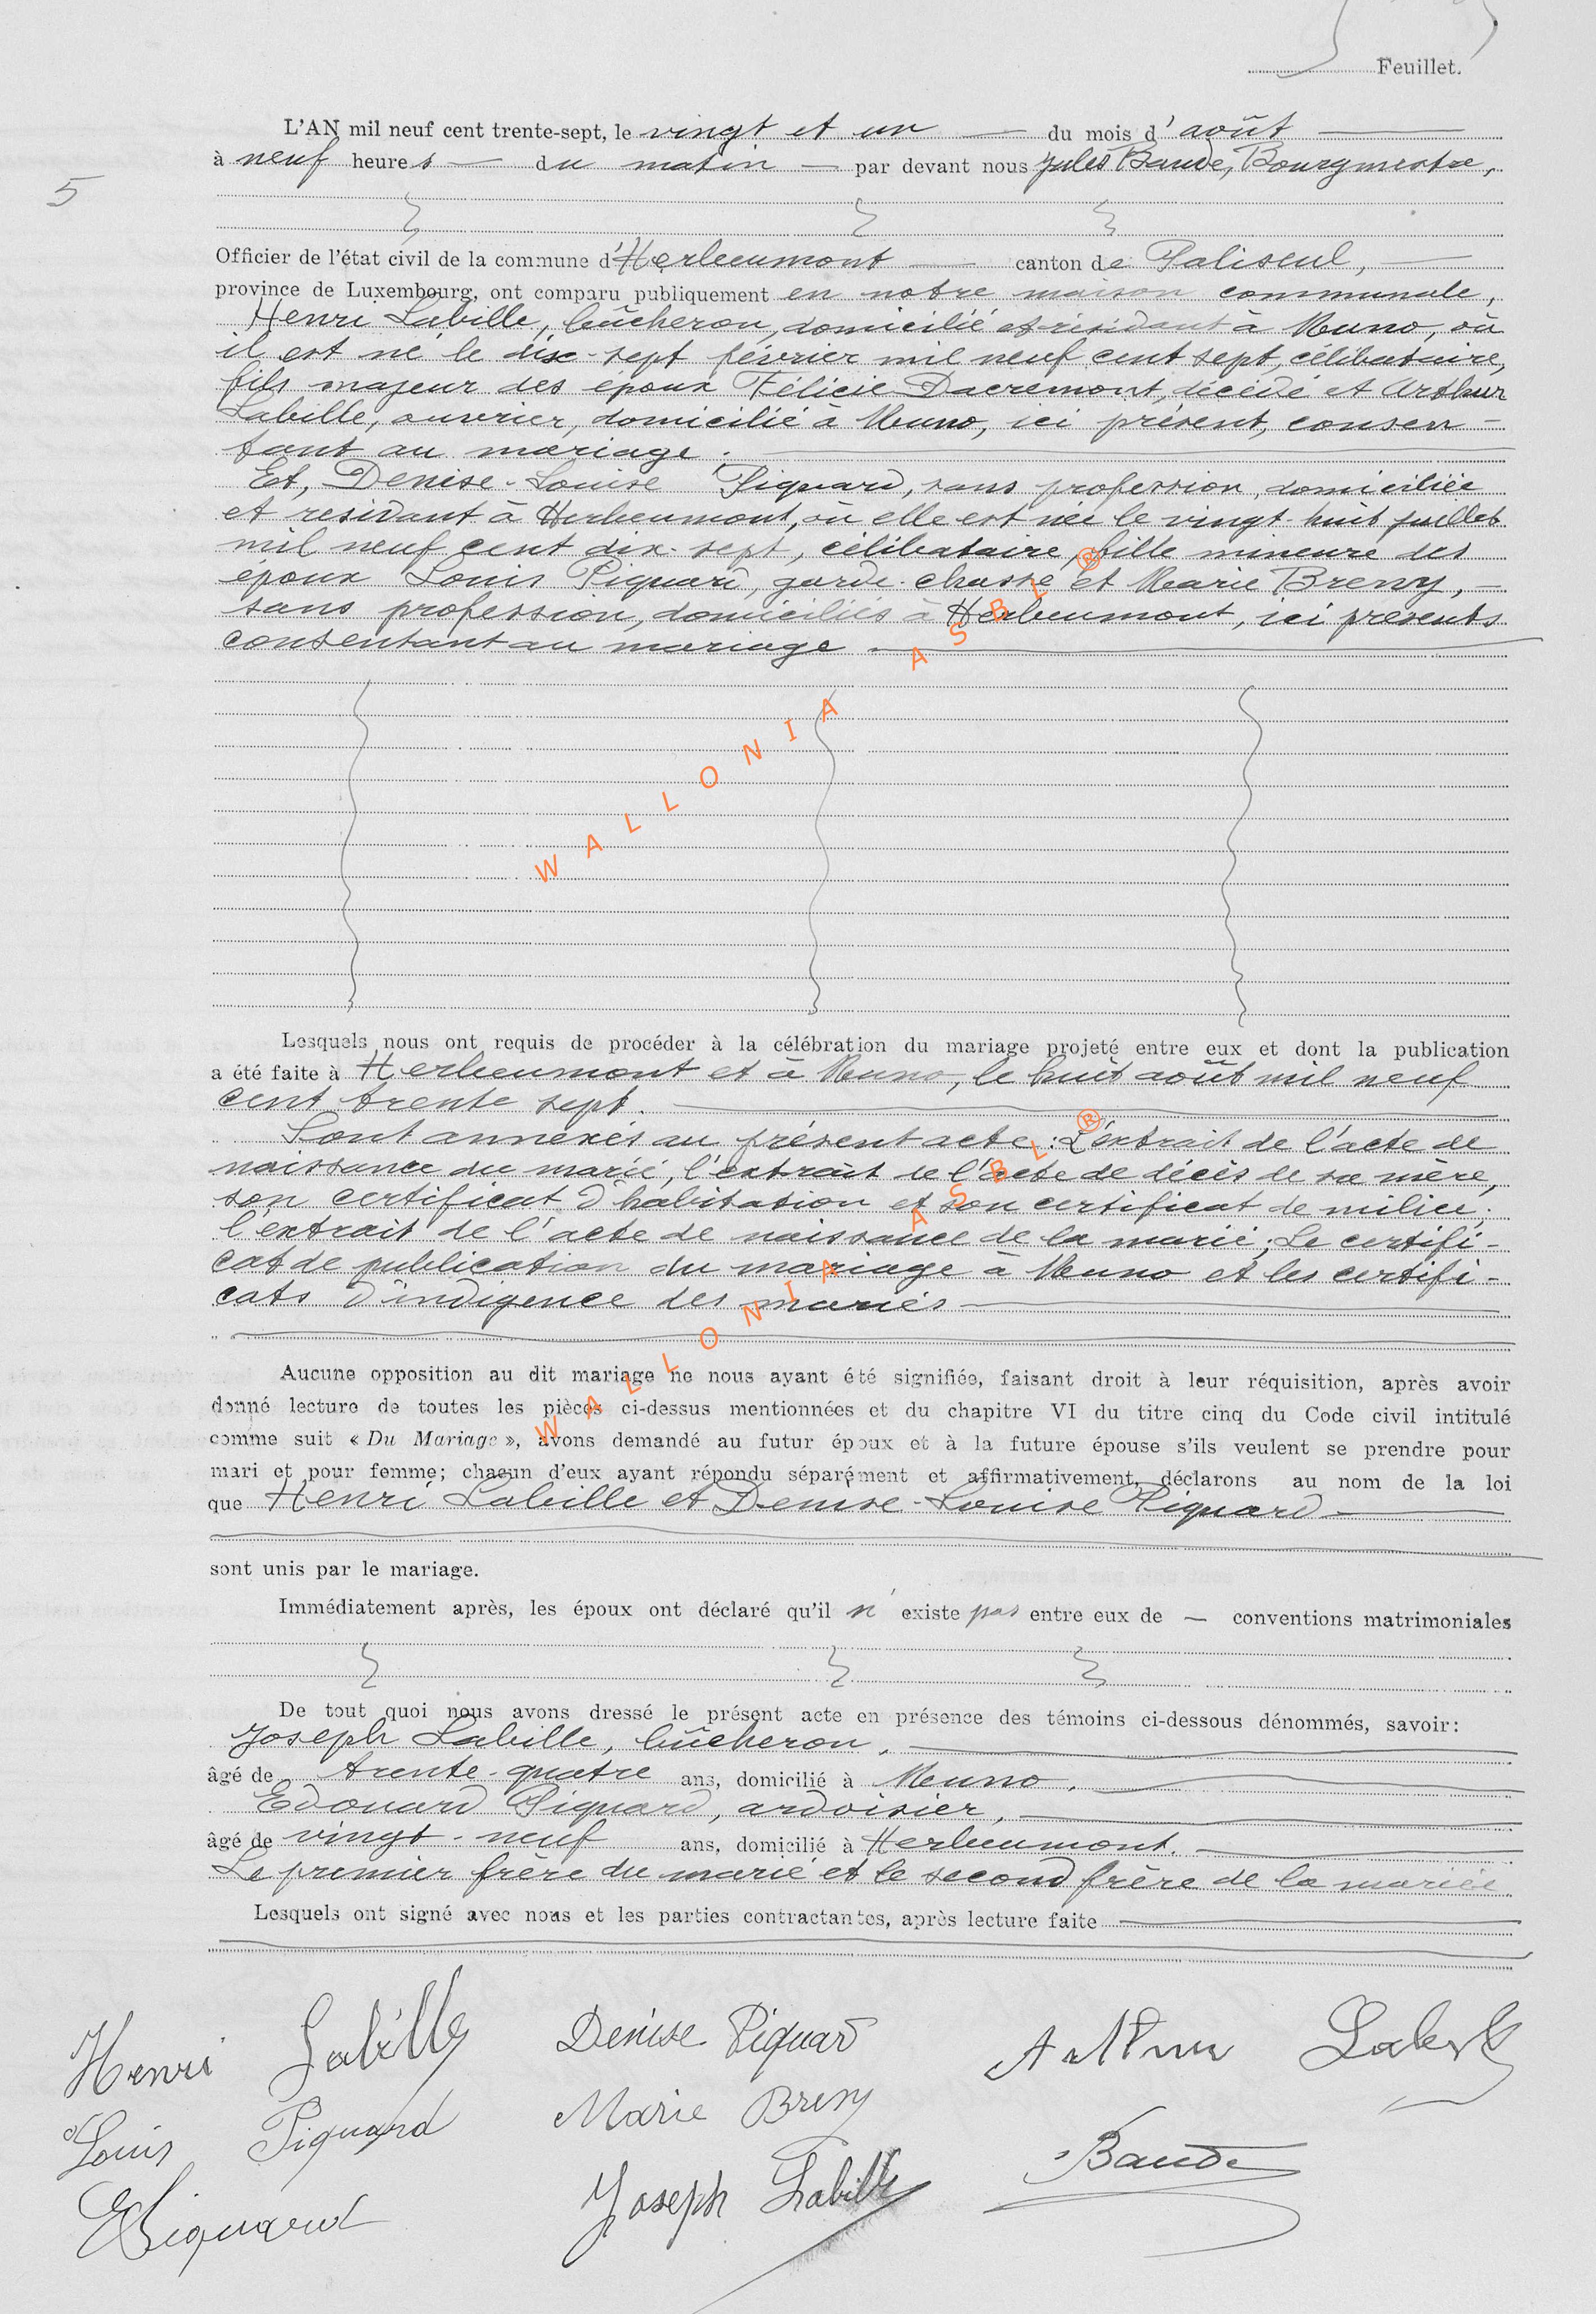 Feuillet.
L'AN mil neuf cent trente-sept, le vingt et un — du mois d'août —
à neuf heures — du matin — par devant nous Jules Baude, Bourgmestre,
5
Officier de l'état civil de la commune d'Herbeumont — canton de Paliseul, —
province de Luxembourg, ont comparu publiquement en notre maison communale,
Henri Labille, bûcheron, domicilié et résidant à Muno, où
il est né le dix-sept février mil neuf cent sept, célibataire,
fils majeur des époux Félicie Dacremont, décédé et Arthur
Labille, ouvrier, domicilié à Muno, ici présent, consen-
tant au mariage.
Et, Denise-Louise Piquard, sans profession, domiciliée
et résidant à Herbeumont, où elle est née le vingt-huit juillet
mil neuf cent dix-sept, célibataire, fille mineure des
époux Louis Piquard, garde-chasse et Marie Breny, —
sans profession, domiciliés à Herbeumont, ici présents
consentant au mariage.
WALLONIA ASBL ®
Lesquels nous ont requis de procéder à la célébration du mariage projeté entre eux et dont la publication
a été faite à Herbeumont et à Muno, le huit août mil neuf
cent trente sept.
Sont annexés au présent acte : L'extrait de l'acte de
naissance du marié, l'extrait de l'acte de décès de sa mère,
son certificat d'habitation et son certificat de milice;
l'extrait de l'acte de naissance de la marié; Le certifi-
cat de publication du mariage à Muno et les certifi-
cats d'indigence des mariés —
WALLONIA ASBL ®
Aucune opposition au dit mariage ne nous ayant été signifiée, faisant droit à leur réquisition, après avoir
donné lecture de toutes les pièces ci-dessus mentionnées et du chapitre VI du titre cinq du Code civil intitulé
comme suit « Du Mariage », avons demandé au futur époux et à la future épouse s'ils veulent se prendre pour
mari et pour femme; chacun d'eux ayant répondu séparément et affirmativement, déclarons au nom de la loi
que Henri Labille et Denise-Louise Piquard —
sont unis par le mariage.
Immédiatement après, les époux ont déclaré qu'il n'existe pas entre eux de — conventions matrimoniales
De tout quoi nous avons dressé le présent acte en présence des témoins ci-dessous dénommés, savoir:
Joseph Labille, bûcheron,
âgé de trente-quatre ans, domicilié à Muno.
Edouard Piquard, ardoisier,
âgé de vingt-neuf ans, domicilié à Herbeumont.
Le premier frère du marié et le second frère de la mariée
Lesquels ont signé avec nous et les parties contractantes, après lecture faite
Henri Labille Denise Piquard Arthur Labille
Louis Piquard Marie Breny Baude
E Piquard Joseph Labille